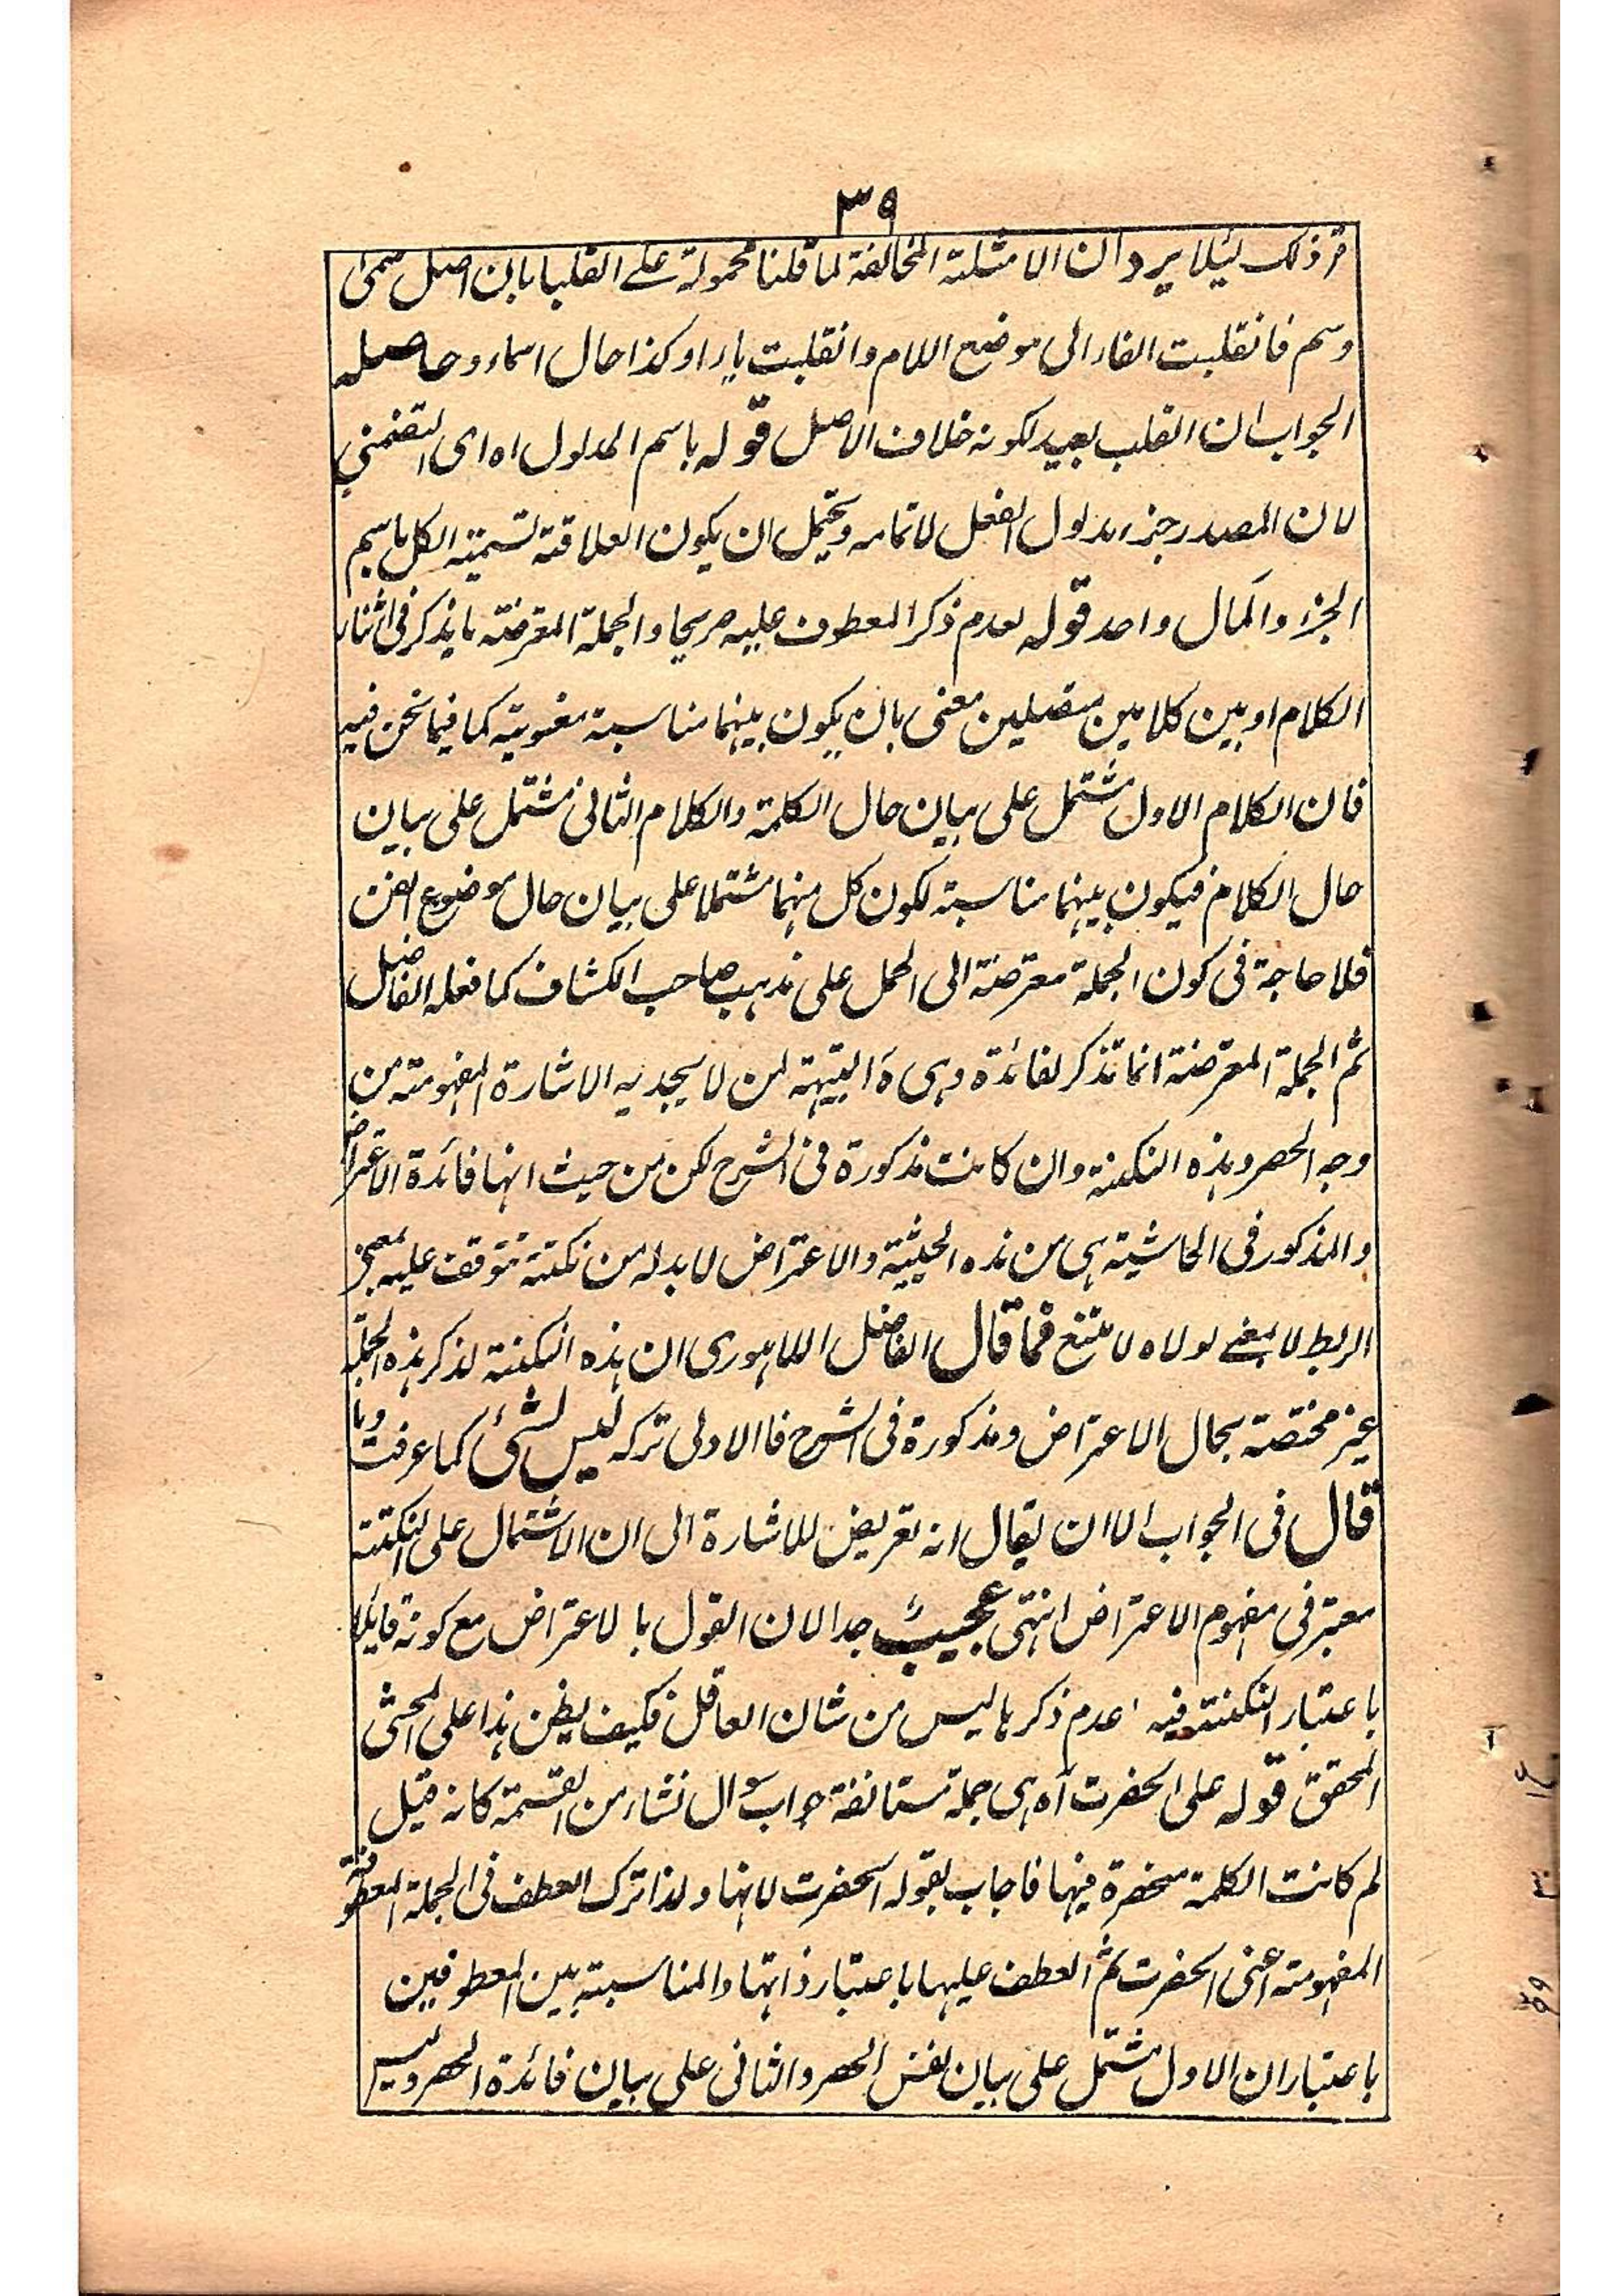 ٣٩
ذلك لئلا يرد ان الامثلة المخالفة لما قلنا محمولة على القلب بان اصل سمى
وسم فانقلبت الفاء الى موضع اللام وانقلبت ياء او كذا حال اسماء وحاصله
الجواب ان القلب بعيد لكونه خلاف الاصل قوله باسم المدلول اه اى التضمنى
لان المصدر جزء مدلول الفعل لا تمامه ويحتمل ان يكون العلاقة تسمية الكل باسم
الجزء والمآل واحد قوله لعدم ذكر المعطوف عليه صريحا والجملة المعترضة ما يذكر فى اثناء
الكلام او بين كلامين متصلين معنى بان يكون بينهما مناسبة معنوية كما فيما نحن فيه
فان الكلام الاول مشتمل على بيان حال الكلمة والكلام الثانى مشتمل على بيان
حال الكلام فيكون بينهما مناسبة لكون كل منهما مشتملا على بيان حال موضوع الفن
فلا حاجة فى كون الجملة معترضة الى الحمل على مذهب صاحب الكشاف كما فعله الفاضل
ثم الجملة المعترضة انما تذكر لفائدة وهى لمن لا يجديه الاشارة المفهومة من
وجه الحصر وهذه النكتة وان كانت مذكورة فى الشرح لكن من حيث انها فائدة الاعتراض
والمذكور فى الحاشية هى من هذه الحيثية والاعتراض لا بد له من نكتة تتوقف عليه
الربط لا بمعنى لولاه لامتنع فما قال الفاضل اللاهورى ان هذه النكتة لذكر هذه الجملة
غير مختصة بحال الاعتراض ومذكورة فى الشرح فالاولى تركه ليس بشئ كما عرفت وما
قال فى الجواب الا ان يقال انه تعريض للاشارة الى ان الاشتمال على النكتة
معتبر فى مفهوم الاعتراض انتهى عجيب جدا لان القول بالاعتراض مع كونه قايلا
باعتبار النكتة فيه عدم ذكرها ليس من شان العاقل فكيف يظن هذا على المحشى
المحقق قوله على انحصرت اه هى جملة مستانفة جواب سوال نشاء من القسمة كانه قيل
لم كانت الكلمة منحصرة فيها فاجاب بقوله انحصرت لانها ولذا ترك العطف فى الجملة المعطوفة
المفهومة اعنى انحصرت ثم العطف عليها باعتبار ذاتها والمناسبة بين المعطوفين
باعتبار ان الاول مشتمل على بيان نفس الحصر والثانى على بيان فائدة الحصر وليس